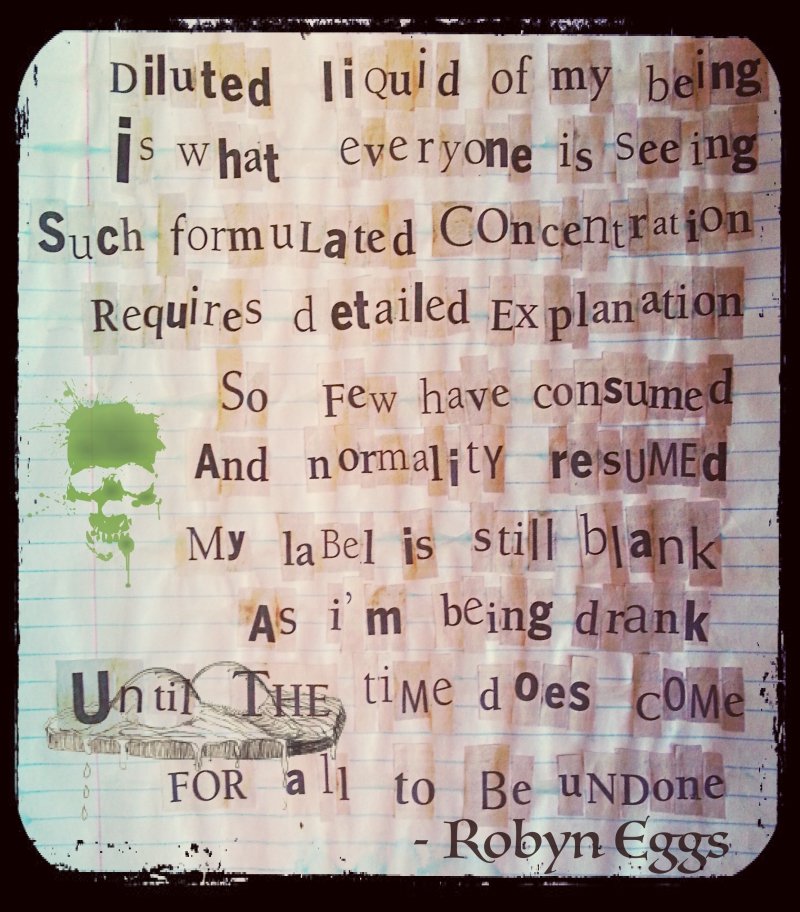 Diluted liQuid of my being
is what everyone is seeing
Such formuLated COncentration
Requires detailed Explanation
So Few have consumed
And normality resUMEd
My laBel is still blank
As i'm being drank
Until THE tiMe does COMe
FOR all to Be uNDone
- Robyn Eggs